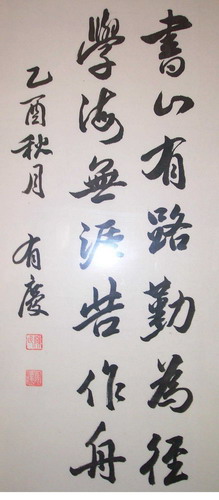 書山有路勤為徑
學海無涯苦作舟
乙酉秋月
有慶